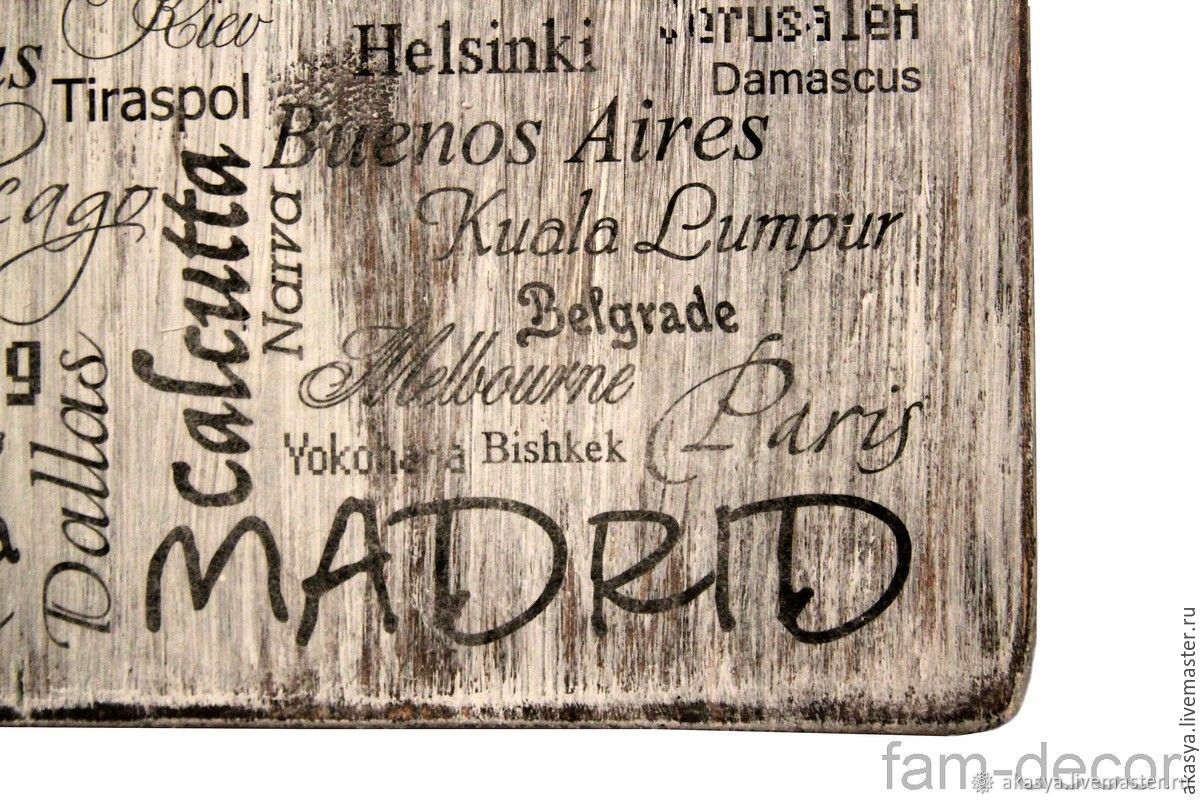 Kiev
Helsinki
Jerusalem
Damascus
Tiraspol
Buenos Aires
Calcutta
Narva
Kuala Lumpur
Belgrade
Melbourne
Paris
Dallas
Yokohama
Bishkek
MADRID
fam-decor
akasya.livemaster.ru
akasya.livemaster.ru